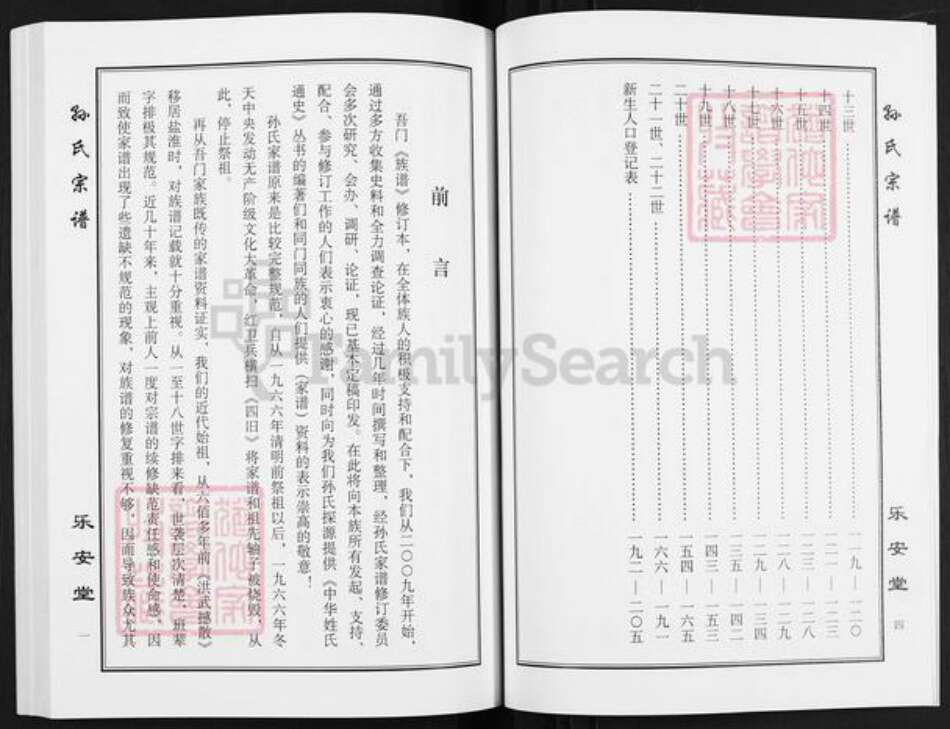 孙氏宗谱
十三世 一一九—一二〇
十四世 一二一—一二三
十五世 一二三—一二八
十六世 一二八—一二九
十七世 一二九—一三四
十八世 一三五—一四二
十九世 一四三—一五三
二十世 一五四—一六五
二十一世、二十二世 一六六—一九一
新生人口登记表 一九二—二〇五
乐安堂
四
前言
吾门《族谱》修订本，在全体族人的积极支持和配合下，我们从二〇〇九年开始，
通过多方收集史料和全力调查论证，经过几年时间撰写和整理，经孙氏家谱修订委员
会多次研究、会办、调研、论证，现已基本定稿印发。在此将向本族所有发起、支持、
配合、参与修订工作的人们表示衷心的感谢，同时向为我们孙氏探源提供《中华姓氏
通史》丛书的编著们和同门同族的人们提供（家谱）资料的表示崇高的敬意！
孙氏家谱原来是比较完整规范，自从一九六六年清明前祭祖以后，一九六六年冬
天中央发动无产阶级文化大革命，红卫兵横扫《四旧》将家谱和祖先轴子被烧毁，从
此，停止祭祖。
再从吾门家族既传的家谱资料证实，我们的近代始祖，从六佰多年前《洪武撼散》
移居盐淮时，对族谱记载就十分重视。从一至十八世字排来看，世袭层次清楚，班辈
字排极其规范。近几十年来，主观上前人一度对宗谱的续修缺范责任感和使命感，因
而致使家谱出现了些遗缺不规范的现象，对族谱的修复重视不够，因而导致族众尤其
孙氏宗谱
乐安堂
一
FamilySearch